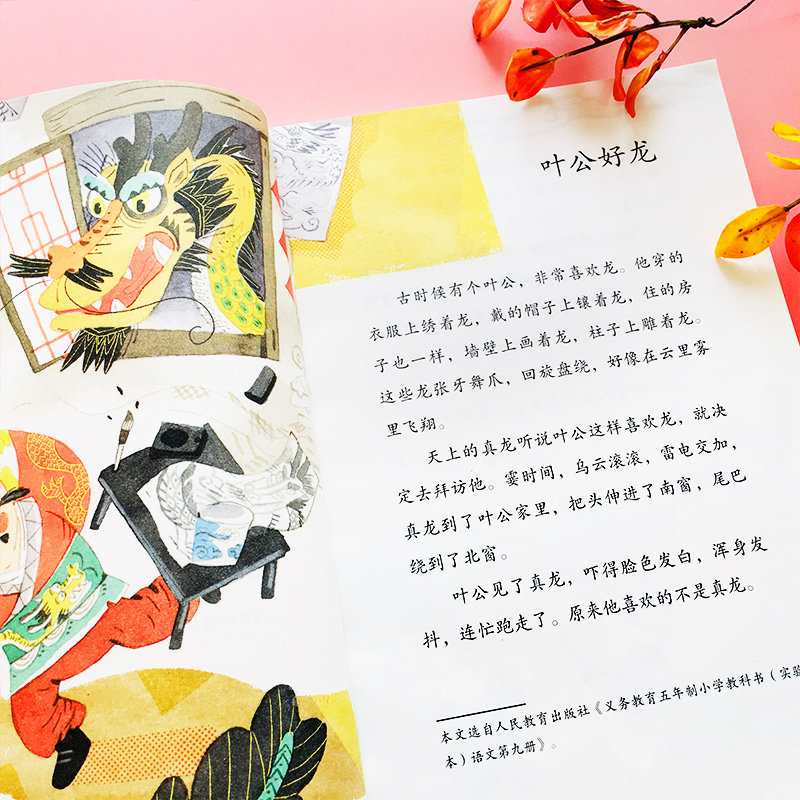 叶公好龙
古时候有个叶公，非常喜欢龙。他穿的
衣服上绣着龙，戴的帽子上镶着龙，住的房
子也一样，墙壁上画着龙，柱子上雕着龙。
这些龙张牙舞爪，回旋盘绕，好像在云里雾
里飞翔。
天上的真龙听说叶公这样喜欢龙，就决
定去拜访他。霎时间，乌云滚滚，雷电交加，
真龙到了叶公家里，把头伸进了南窗，尾巴
绕到了北窗。
叶公见了真龙，吓得脸色发白，浑身发
抖，连忙跑走了。原来他喜欢的不是真龙。
本文选自人民教育出版社《义务教育五年制小学教科书（实验
本）语文第九册》。